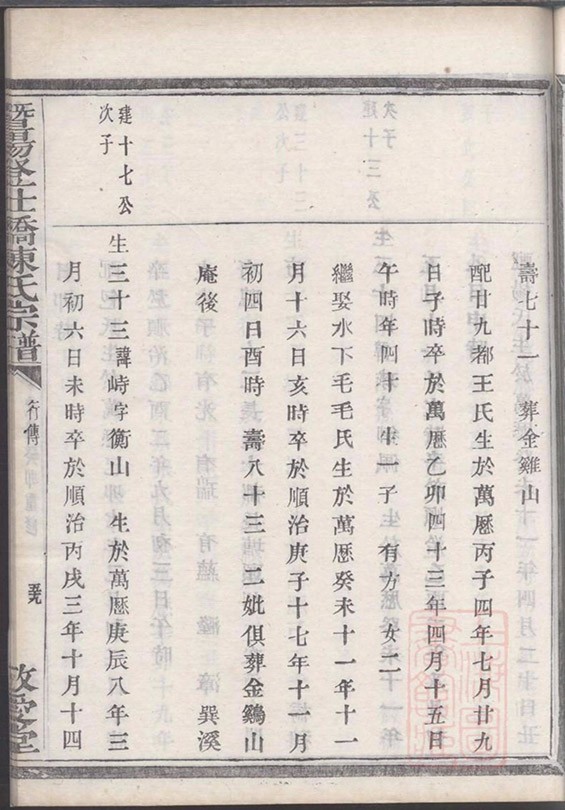 壽七十一 葬金雞山
配廿九都王氏生於萬曆丙子四年七月廿九
日子時卒於萬曆乙卯四十三年四月十五日
午時年四十 生一子 有方 女二
繼娶水下毛毛氏生於萬曆癸未十一年十一
月十六日亥時卒於順治庚子十七年十一月
初四日酉時壽八十三 二妣俱葬金鷄山
庵後 巽溪
建十七公
次子
生三十三諱峙字衡山 生於萬曆庚辰八年三
月初六日未時卒於順治丙戌三年十月十四
暨陽登仕橋陳氏宗譜
行傳
敬愛堂